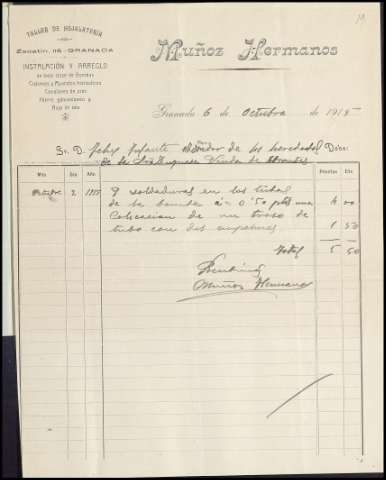 TALLER DE HOJALATERÍA
Zacatín, 116.-GRANADA
INSTALACIÓN Y ARREGLO
de toda clase de Bombas
Cañerías y Aparatos hidráulicos
Canalones de zinc
Hierro galvanizado y
Hoja de lata
Muñoz Hermanos
Granada 6 de Octubre de 191
Sr. D. Felix Infante de los heredad Debe:
de la Duquesa Viuda de
Mes Día Año Pesetas Cts
Octubre 2 191
9 soldaduras en los tubos
de la bomba á 0'50 pts una 4 00
Colocacion de un trozo de
tubo con dos 1 50
Total 5 50
Recibimos
Muñoz Hermanos